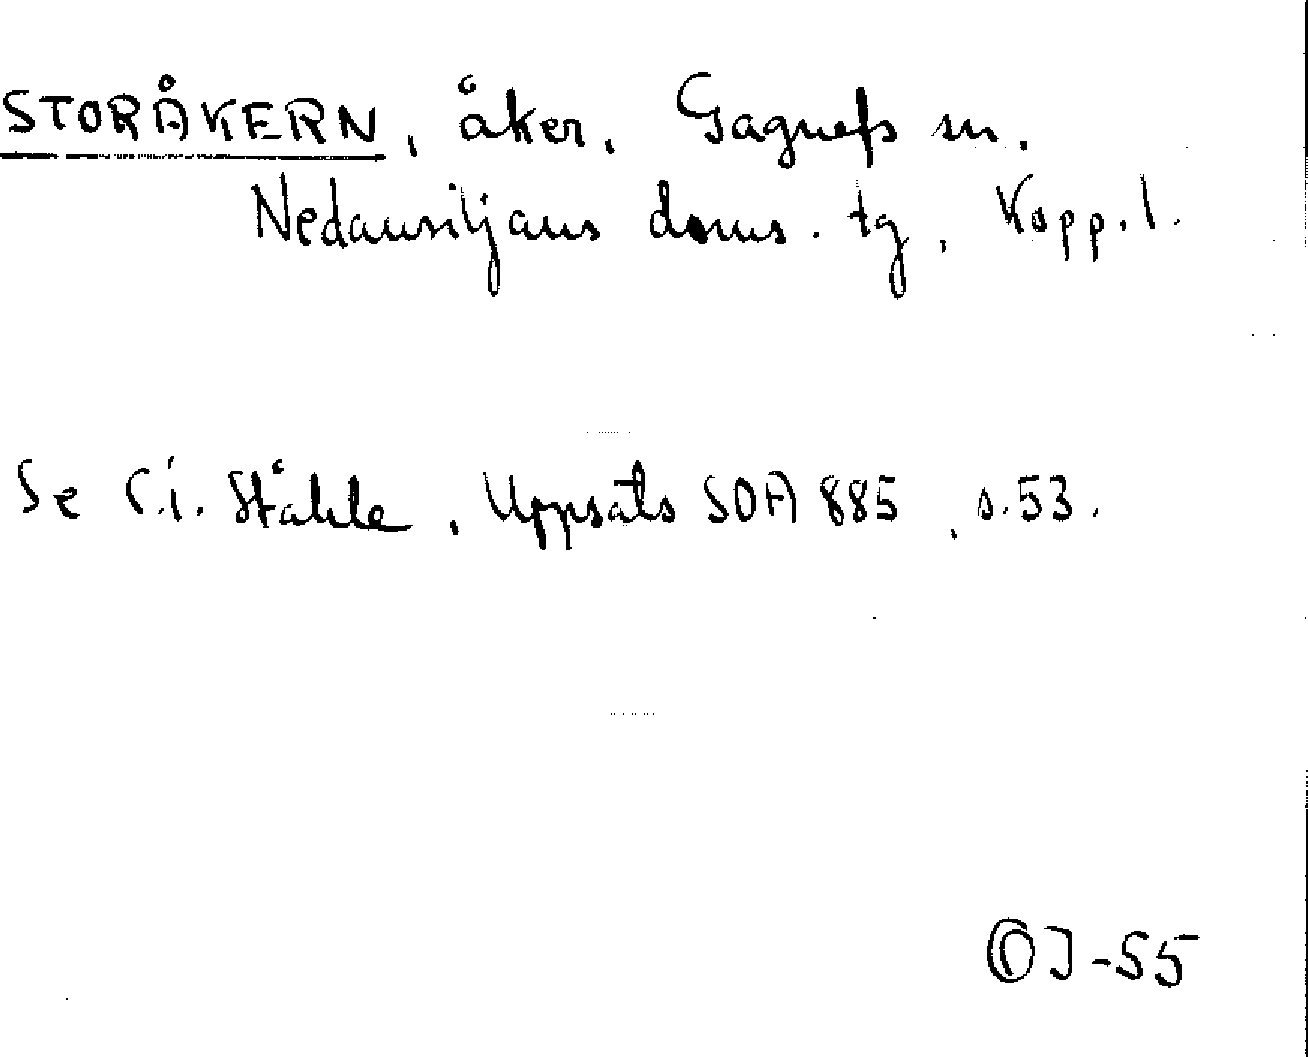 STORÅKERN, åker. Gagnefs sn.
Nedansiljans doms. tg, Kopp.l.
Se C.i. Ståhle, Uppsats SOA 885, s.53.
ÖJ-55